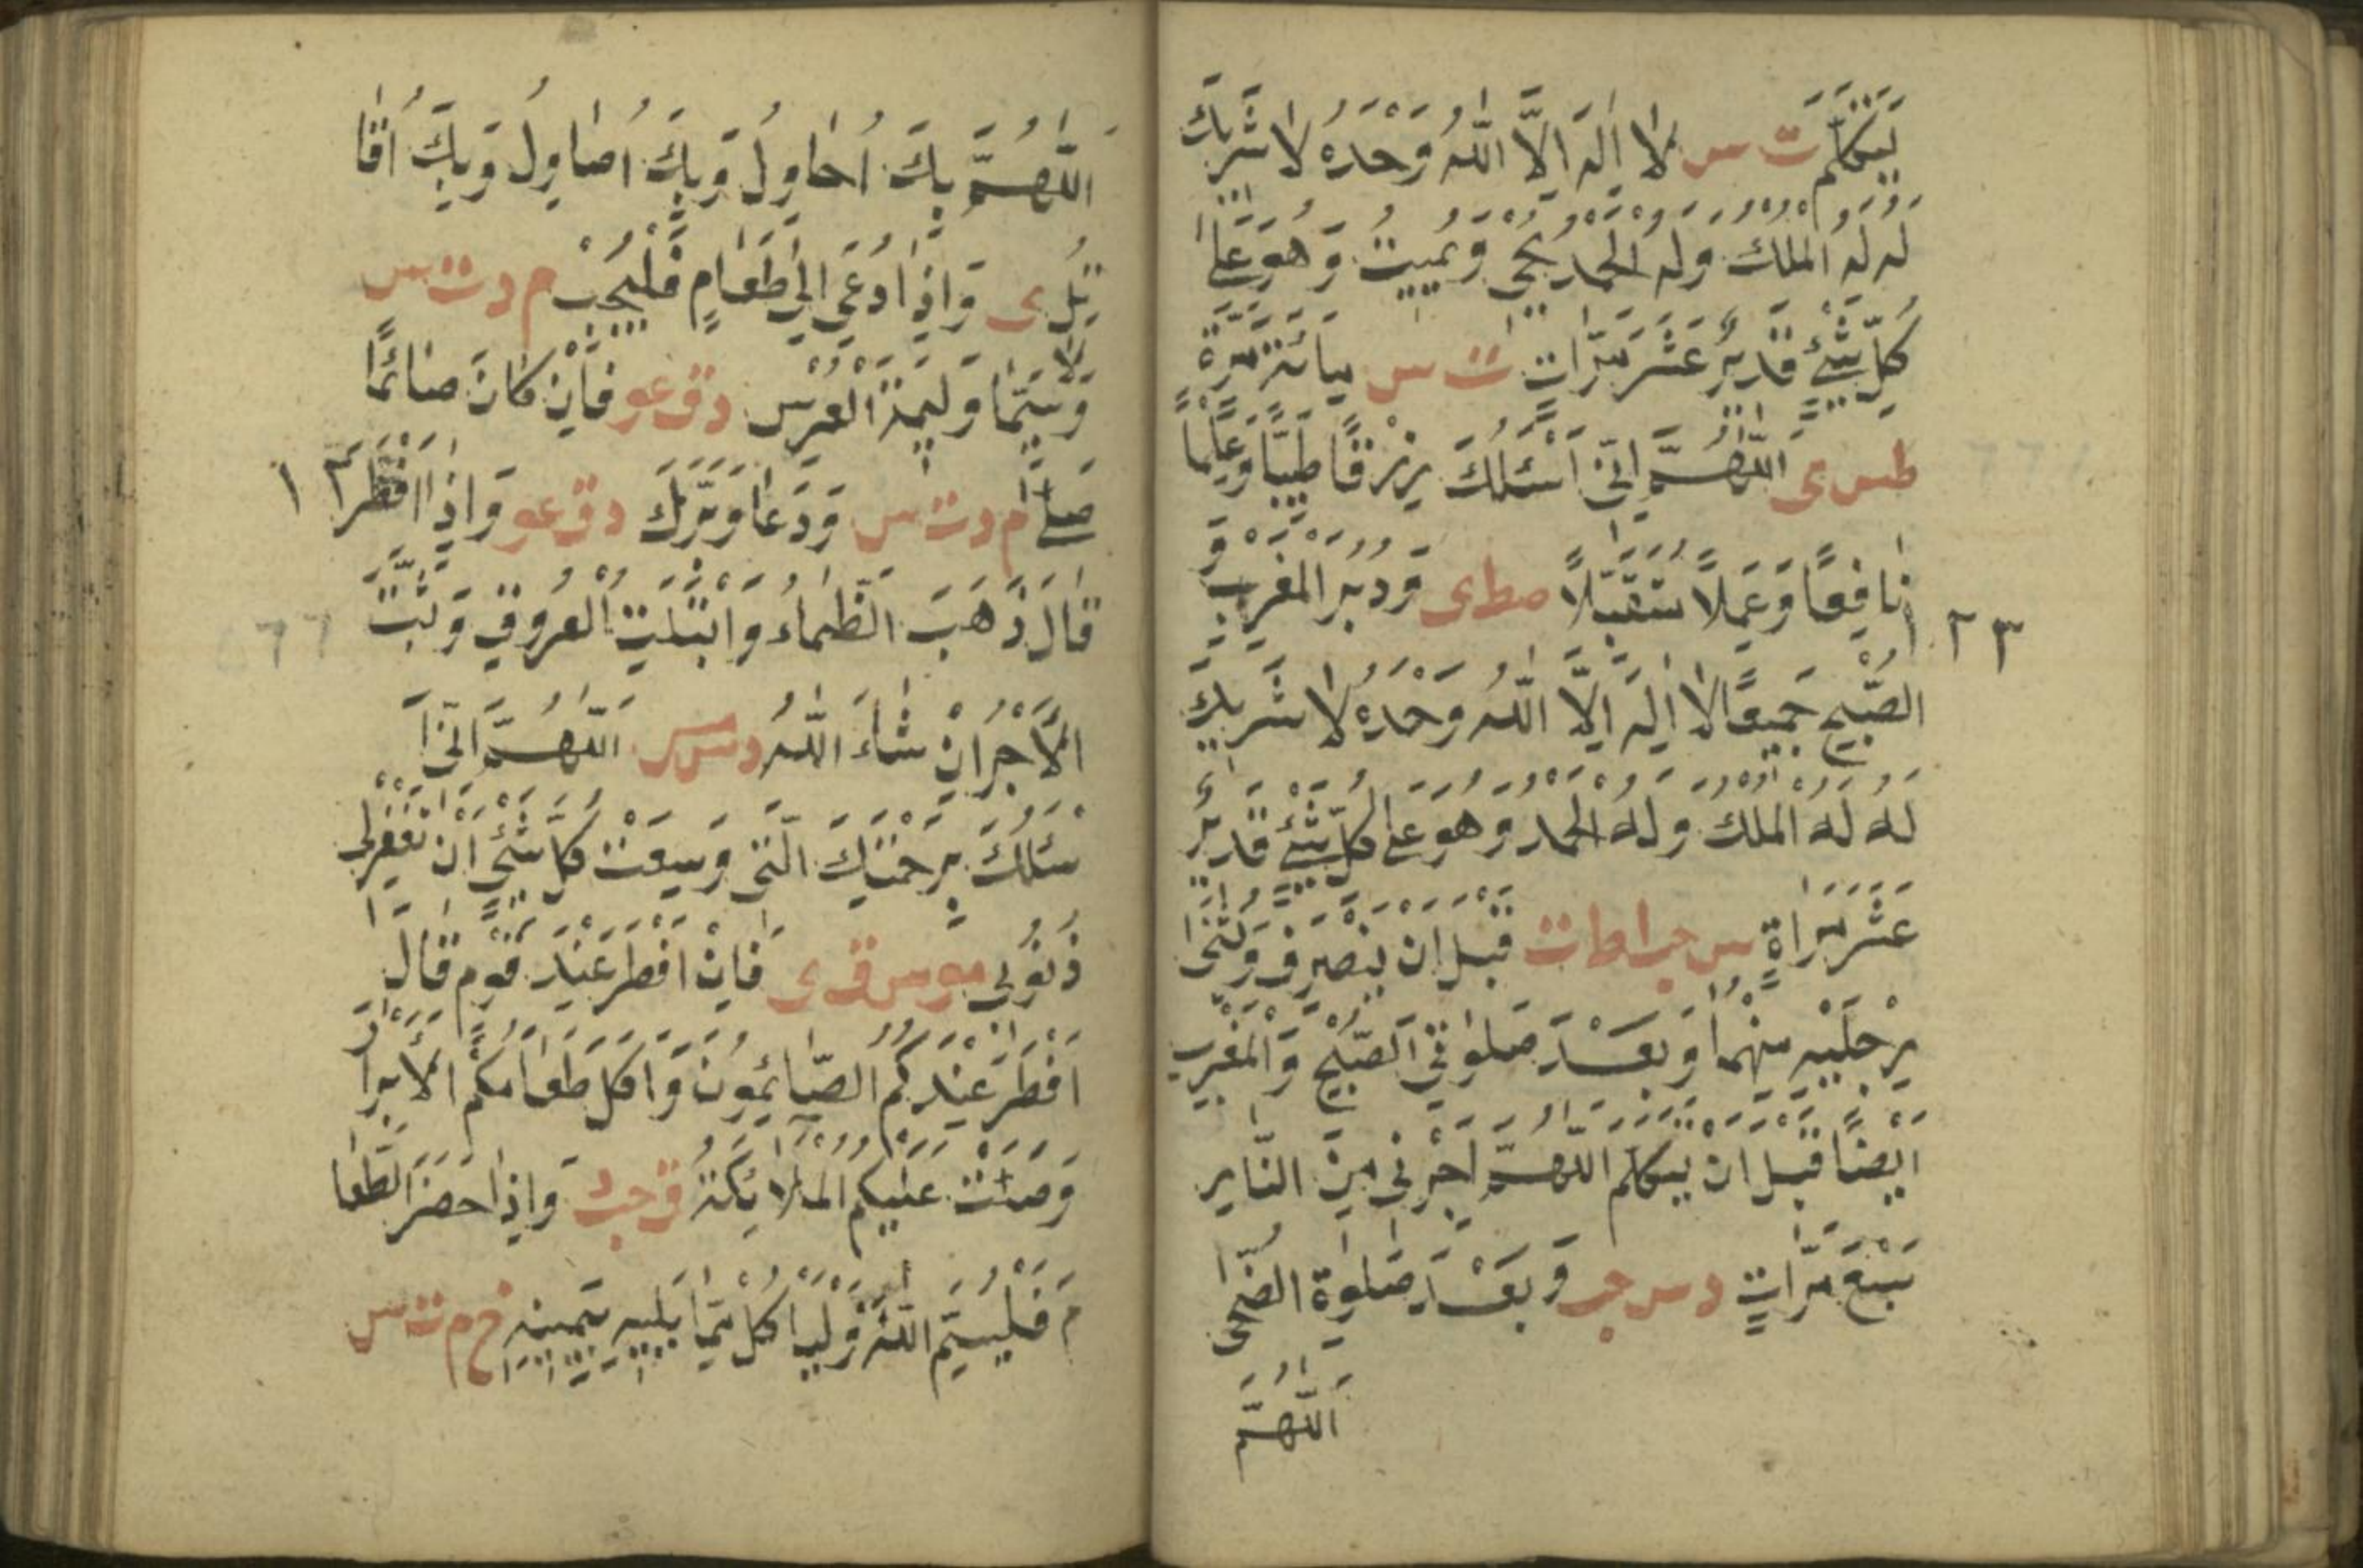 يَتَكَلَّمَ ت س لَا اِلٰهَ اِلَّا اللّٰهُ وَحْدَهُ لَا شَرِيكَ
لَهُ لَهُ الْمُلْكُ وَلَهُ الْحَمْدُ يُحْيِي وَيُمِيتُ وَهُوَ عَلٰى
كُلِّ شَيْءٍ قَدِيرٌ عَشْرَ مَرَّاتٍ ت س مِائَةَ مَرَّةٍ
طس ى اَللّٰهُمَّ اِنِّي اَسْئَلُكَ رِزْقًا طَيِّبًا وَعِلْمًا
نَافِعًا وَعَمَلًا مُتَقَبَّلًا صط ى وَدُبُرَ الْمَغْرِبِ وَ
الصُّبْحِ جَمِيعًا لَا اِلٰهَ اِلَّا اللّٰهُ وَحْدَهُ لَا شَرِيكَ
لَهُ لَهُ الْمُلْكُ وَلَهُ الْحَمْدُ وَهُوَ عَلٰى كُلِّ شَيْءٍ قَدِيرٌ
عَشْرَ مَرَّاةٍ س حب ا ط ات قَبْلَ اَنْ يَنْصَرِفَ وَيُثْنِى
رِجْلَيْهِ مِنْهُمَا وَبَعْدَ صَلٰوتَيِ الصُّبْحِ وَالْمَغْرِبِ
اَيْضًا قَبْلَ اَنْ يَتَكَلَّمَ اَللّٰهُمَّ اَجِرْنِى مِنَ النَّارِ
سَبْعَ مَرَّاتٍ د س حب وَبَعْدَ صَلٰوةِ الضُّحٰى
اَللّٰهُمَّ
٢٣
اَللّٰهُمَّ بِكَ اُحَاوِلُ وَبِكَ اُصَاوِلُ وَبِكَ اُقَا
تِلُ ى وَاِذَا دُعِيَ اِلٰى طَعَامٍ فَلْيُجِبْ م د ت س
وَلَا سِيَّمَا وَلِيمَةَ الْعُرْسِ د ق عو فَاِنْ كَانَ صَائِمًا
صَلّٰى م د ت س وَدَعَا وَبَرَّكَ د ق عو وَاِذَا اَفْطَرَ
قَالَ ذَهَبَ الظَّمَاءُ وَابْتَلَّتِ الْعُرُوقُ وَثَبَتَ
الْاَجْرُ اِنْ شَاءَ اللّٰهُ د س مس اَللّٰهُمَّ اِنِّى اَ
سْئَلُكَ بِرَحْمَتِكَ الَّتِى وَسِعَتْ كُلَّ شَيْءٍ اَنْ تَغْفِرَ لِى
ذُنُوبِى مو مس ق ى فَاِنْ اَفْطَرَ عِنْدَ قَوْمٍ قَالَ
اَفْطَرَ عِنْدَكُمُ الصَّائِمُونَ وَاَكَلَ طَعَامَكُمُ الْاَبْرَارُ
وَصَلَّتْ عَلَيْكُمُ الْمَلَائِكَةُ ق حب وَاِذَا حَضَرَ الطَّعَا
مُ فَلْيُسَمِّ اللّٰهَ وَلْيَاْكُلْ مِمَّا يَلِيهِ بِيَمِينِهِ خ م ت س